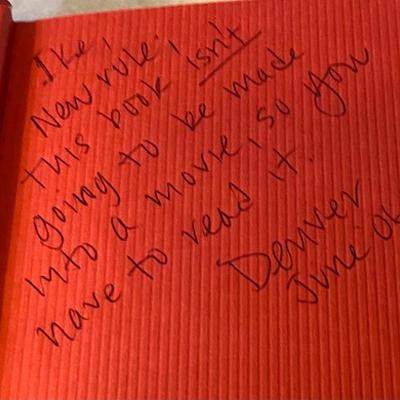 Ike,
New rule:
this book isn't
going to be made
into a movie, so you
have to read it.
Denver
June 06